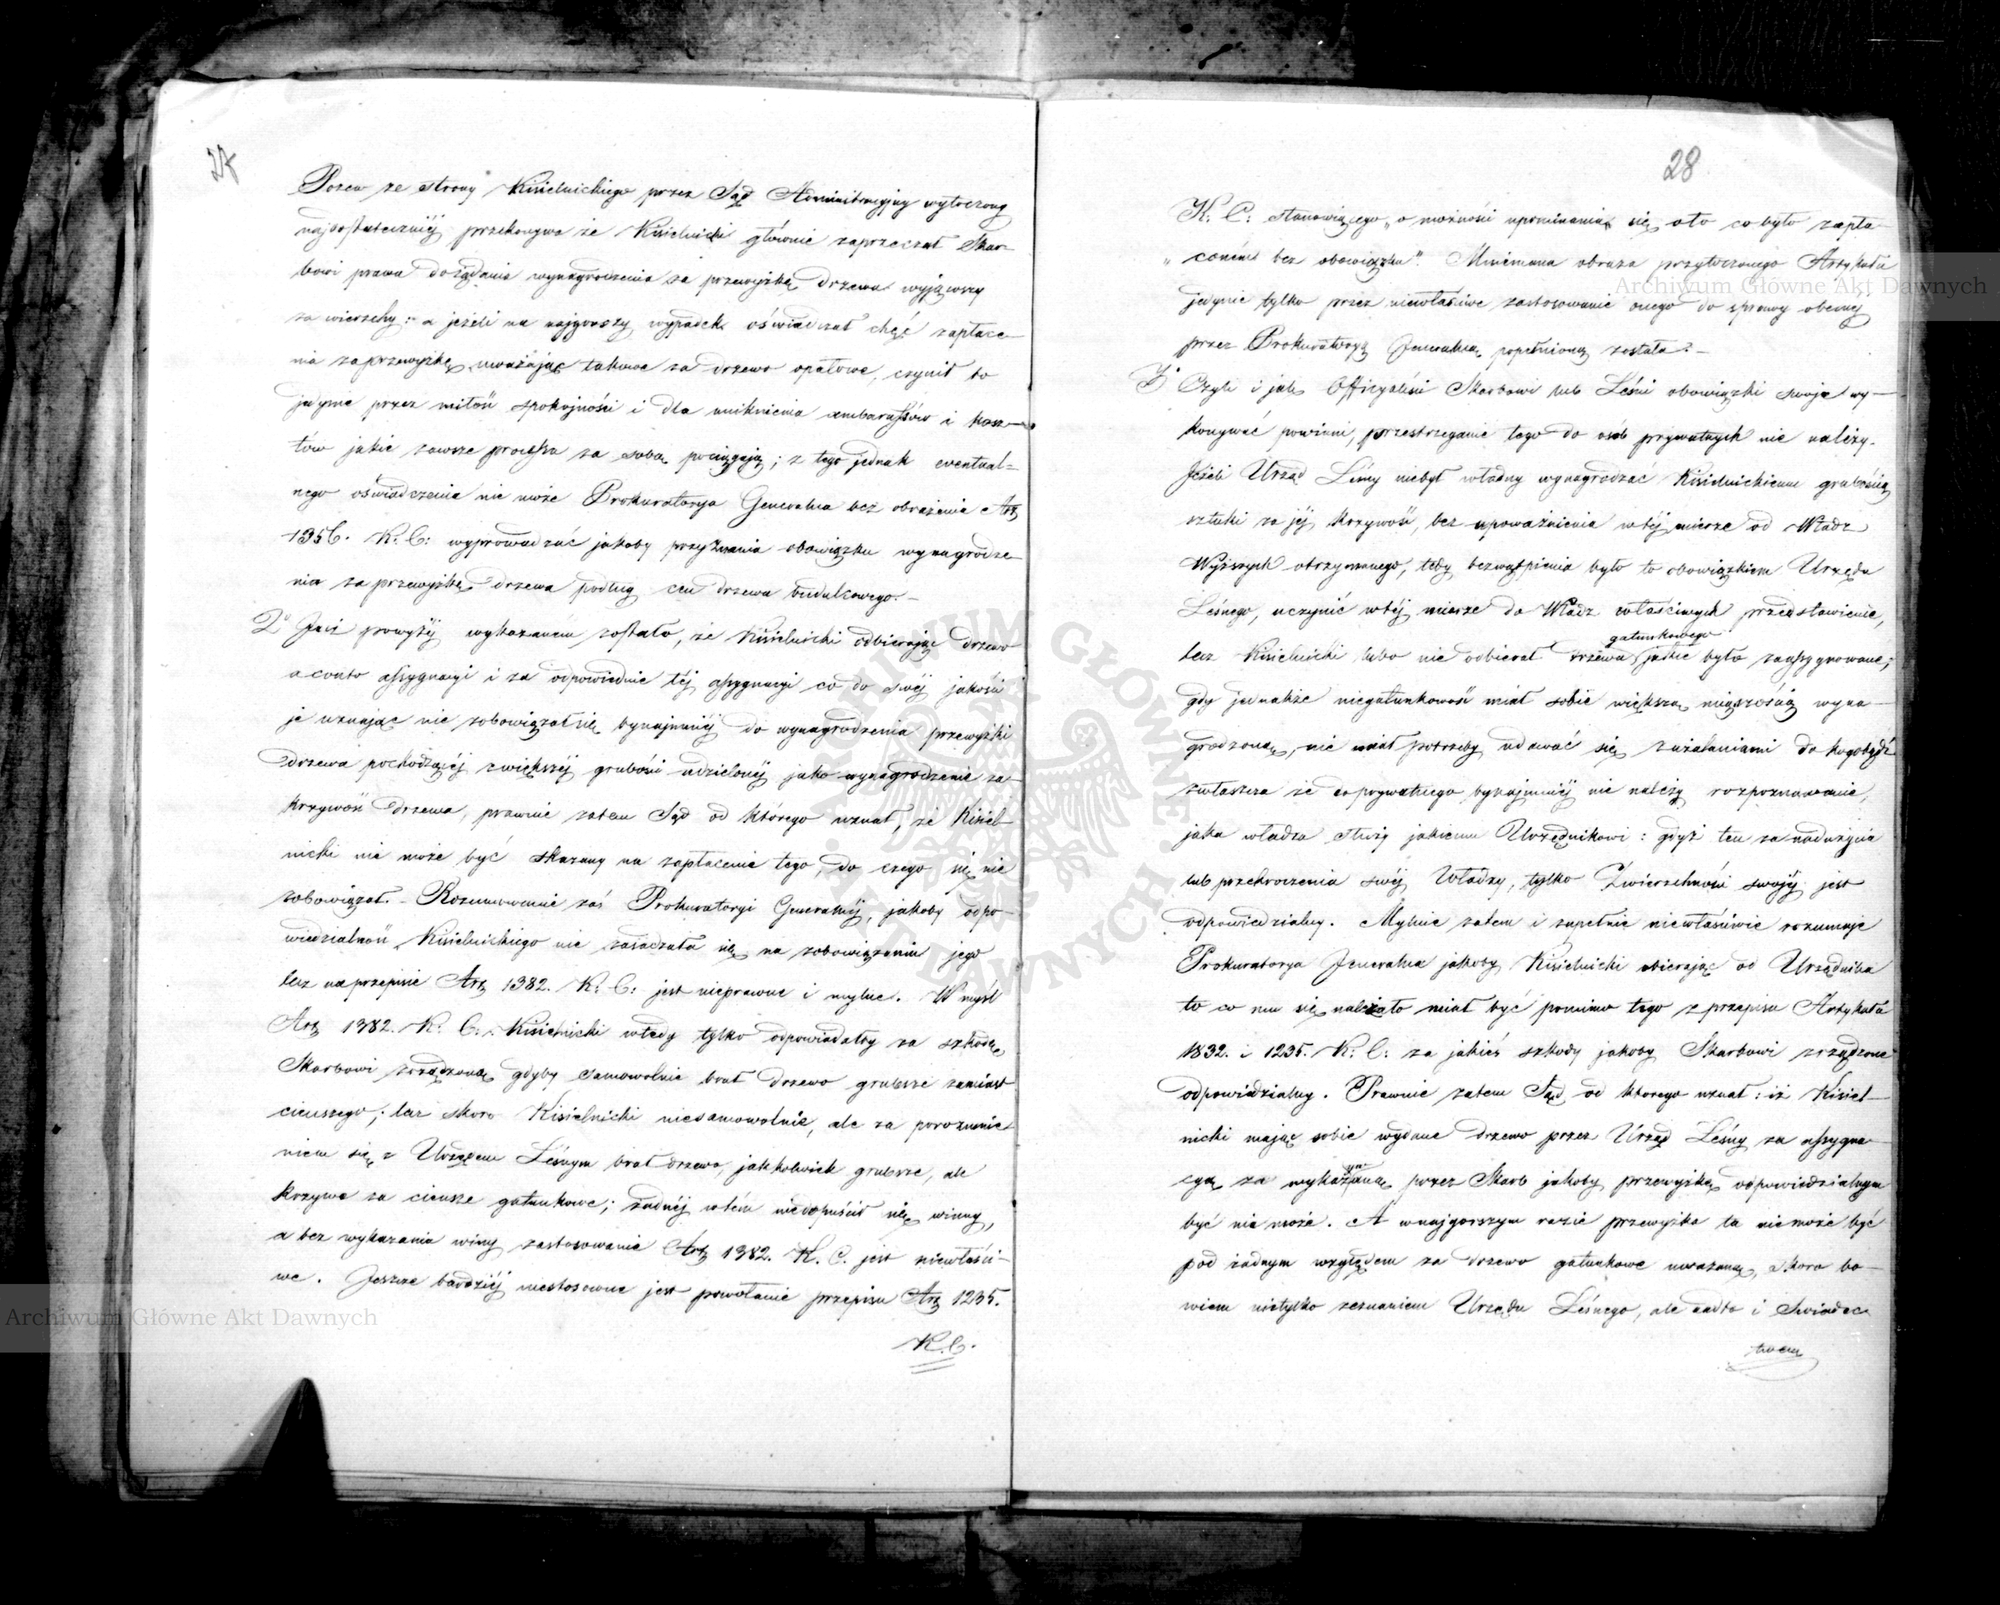 27
Pozew ze strony Kisielnickiego przez Sąd Administracyjny wytoczony
najdostateczniéj przekonywa że Kisielnicki głównie zaprzeczał Skar-
bowi prawa do żądania wynagrodzenia za przewyżkę drzewa wyjąwszy
za wierzchy: a jeżeli na najgorszy wypadek oświadczał chęć zapłace-
nia za przewyżkę uważając takowe za drzewo opałowe, czynił to
jedynie przez miłość spokojności i dla uniknienia ambarassów i kosz-
tów jakie zawsze processa za sobą pociągają; z tego jednak eventual-
nego oświadczenia nie może Prokuratorya Generalna bez obrażenia Art
1356. K. C: wyprowadzać jakoby przyznania obowiązku wynagrodze-
nia za przewyżkę drzewa podług cen drzewa budulcowego.-
2° Już powyżéj wykazaném zostało, że Kisielnicki odbierając drzewo
a conto assygnacyi i za odpowiednie téj assygnacyi co do swéj jakości
je uznając nie zobowiązał się bynajmniéj do wynagrodzenia przewyżki
drzewa pochodzącéj z większéj grubości udzielonéj jako wynagrodzenie za
krzywość drzewa, prawnie zatem Sąd od którego uznał, że Kisiel-
nicki nie może być skazany na zapłacenie tego, do czego się nie
zobowiązał. - Rozumowanie zaś Prokuratoryi Generalnéj, jakoby odpo-
wiedzialność Kisielnickiego nie zasadzała się na zobowiązaniu jego
lecz na przepisie Art 1382. K. C: jest nieprawne i mylne. W myśl
Art 1382. K. C.: Kisielnicki wtedy tylko odpowiadałby za szkodę
Skarbowi zrządzoną gdyby samowolnie brał drzewo grubsze zamiast
cieńszego; lecz skoro Kisielnicki niesamowolnie, ale za porozumie-
niem się z Urzędem Leśnym brał drzewo, jakkolwiek grubsze, ale
krzywe za cieńsze gatunkowe; żadnéj w tém niedopuścił się winy,
a bez wykazania winy zastosowanie Art 1382. K. C. jest niewłaści-
we. Jeszcze bardziéj niestosowne jest powołanie przepisu Art 1235.
K. C.
28
K. C: stanowiącego „o możności upominania się oto co było zapła-
„coném bez obowiązku". Mniemana obraza przytoczonego Artykułu
jedynie tylko przez niewłaściwe zastosowanie onego do sprawy obecnéj
przez Prokuratoryą Jeneralną popełnioną została.-
3° Czyli i jak Officyaliści Skarbowi lub Leśni obowiązki swoje wy-
konywać powinni, przestrzeganie tego do osób prywatnych nie należy.
Jeżeli Urząd Leśny niebył władny wynagradzać Kisielnickiemu grubością
sztuki za jéj krzywość, bez upoważnienia w téj mierze od Władz
Wyższych otrzymanego, tedy bezwątpienia było to obowiązkiem Urzędu
Leśnego, uczynić w téj mierze do Władz właściwych przedstawienie,
gatunkowego
lecz Kisielnicki lubo nie odbierał drzewa jakie było zaassygnowane;
gdy jednakże niegatunkowość miał sobie większą miąższością wyna-
grodzoną, nie miał potrzeby udawać się z użaleniami do kogobądź
zwłaszcza że do prywatnego bynajmniéj nie należy rozpoznawanie,
jaka władza służy jakiemu Urzędnikowi: gdyż ten za nadużycia
lub przekroczenia swéj Władzy, tylko Zwierzchności swojéj jest
odpowiedzialny. Mylnie zatem i zupełnie niewłaściwie rozumuje
Prokuratorya Jeneralna jakoby Kisielnicki obierając od Urzędnika
to co mu się należało miał być pomimo tego z przepisu Artykułu
1832. i 1235. K. C: za jakieś szkody jakoby Skarbowi zrządzone
odpowiedzialny. Prawnie zatem Sąd od którego uznał: iż Kisiel-
nicki mając sobie wydane drzewo przez Urząd Leśny za assygna-
cyą za wykazaną przez Skarb jakoby przewyżkę odpowiedzialnym
być nie może. A w najgorszym razie przewyżka ta nie może być
pod żadnym względem za drzewo gatunkowe uważaną, skoro bo-
wiem nietylko zeznaniem Urzędu Leśnego, ale nadto i Świadec-
twem
Archiwum Główne Akt Dawnych
Archiwum Główne Akt Dawnych
ARCHIWUM GŁÓWNE AKT DAWNYCH